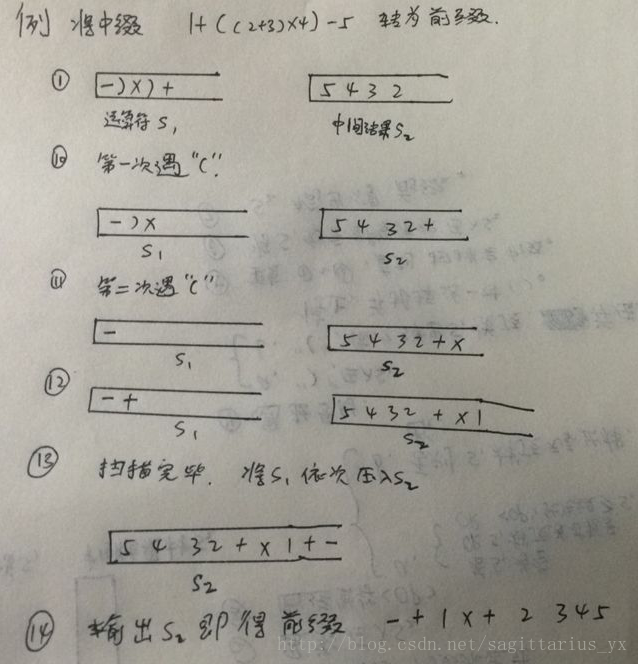 例 将中缀 1+((2+3)×4)-5 转为前缀.
① -)×)+ 5 4 3 2
运算符S₁ 中间结果S₂
⑩ 第一次遇"(".
-)× 5 4 3 2 +
S₁ S₂
⑪ 第二次遇"("
- 5 4 3 2 + ×
S₁ S₂
⑫ - + 5 4 3 2 + × 1
S₁ S₂
⑬ 扫描完毕. 将S₁依次压入S₂
5 4 3 2 + × 1 + -
S₂
⑭ 输出S₂即得前缀 - + 1 × + 2 3 4 5
http://blog.csdn.net/sagittarius_yx